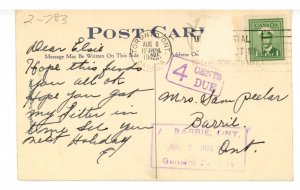 2-783
POST CARD
CANADA
TORONTO, ONT.
AUG 6
12 30 PM
Message May Be Written On This Side
Address On
4 CENTS
DUE
Dear Elsie
Hope this finds
you all ok
Hope you got
my letter
see you
next Holiday
Mrs. Sam
Barrie,
Ont.
BARRIE, ONT.
AUG 7
General